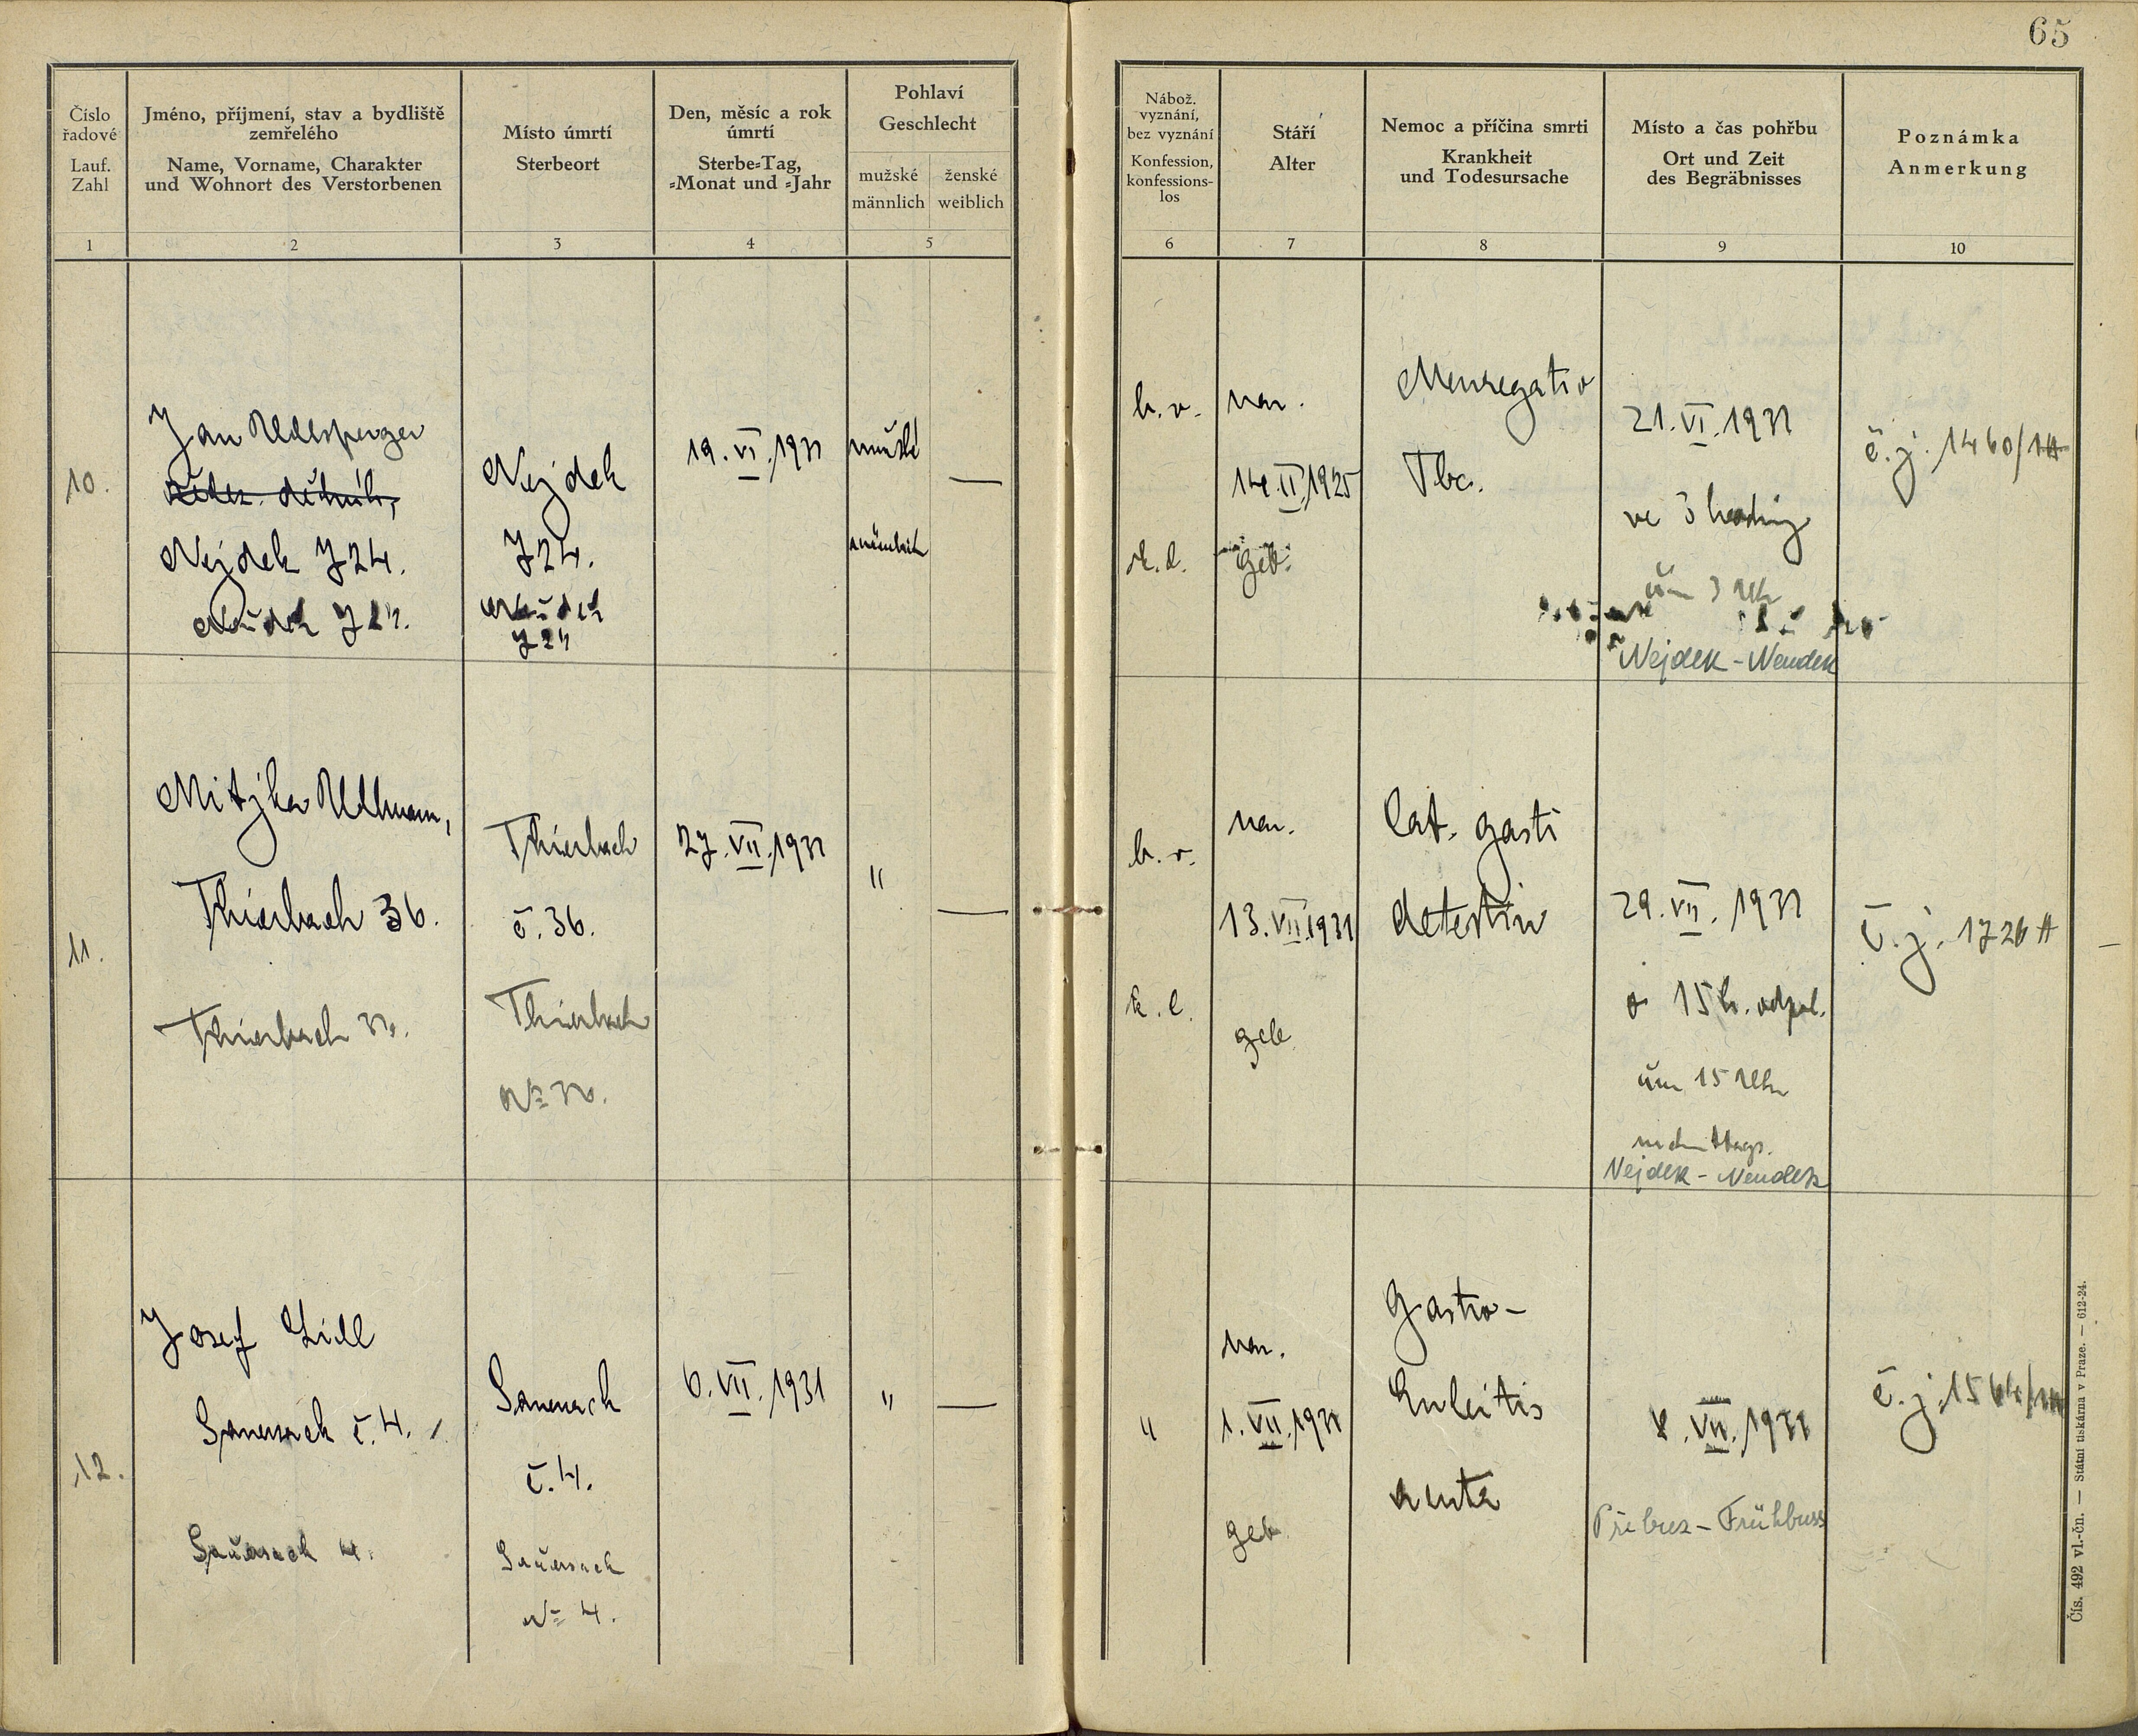 65
Číslo řadové
Lauf. Zahl
Jméno, příjmení, stav a bydliště zemřelého
Name, Vorname, Charakter und Wohnort des Verstorbenen
Místo úmrtí
Sterbeort
Den, měsíc a rok úmrtí
Sterbe-Tag, -Monat und -Jahr
Pohlaví
Geschlecht
mužské
männlich
ženské
weiblich
Nábož. vyznání, bez vyznání
Konfession, konfessions-los
Stáří
Alter
Nemoc a příčina smrti
Krankheit und Todesursache
Místo a čas pohřbu
Ort und Zeit des Begräbnisses
Poznámka
Anmerkung
1 2 3 4 5 6 7 8 9 10
10.
Jan
Nejdek 724.
724.
Nejdek
724.
19. VI. 1931
mužské
männlich
—
b. v.
k. l.
nar.
14. II. 1925
geb.
Tbc.
21. VI. 1931
ve 3 hodiny
um 3 Uhr
Nejdek - Neudek
č. j. 1460/
11.
Ullmann,
Thierbach 36.
Thierbach 36.
Thierbach
č. 36.
Thierbach
No 36.
27. VII. 1931
"
—
b. v.
k. l.
nar.
13. VII. 1931
geb.
Cat. gasti
29. VII. 1931
o 15 h. odpol.
um 15 Uhr
nachmittags.
Nejdek - Neudek
č. j. 1726
12.
Josef
Sauersack č. 4.
Sauersack 4.
Sauersack
č. 4.
Sauersack
No 4.
6. VII. 1931
"
—
"
nar.
1. VII. 1931
geb.
Gastro-
8. VII. 1931
Přebuz - Frühbuss
č. j. 1564/
Čís. 492 vl.-čn. — Státní tiskárna v Praze. — 612-24.